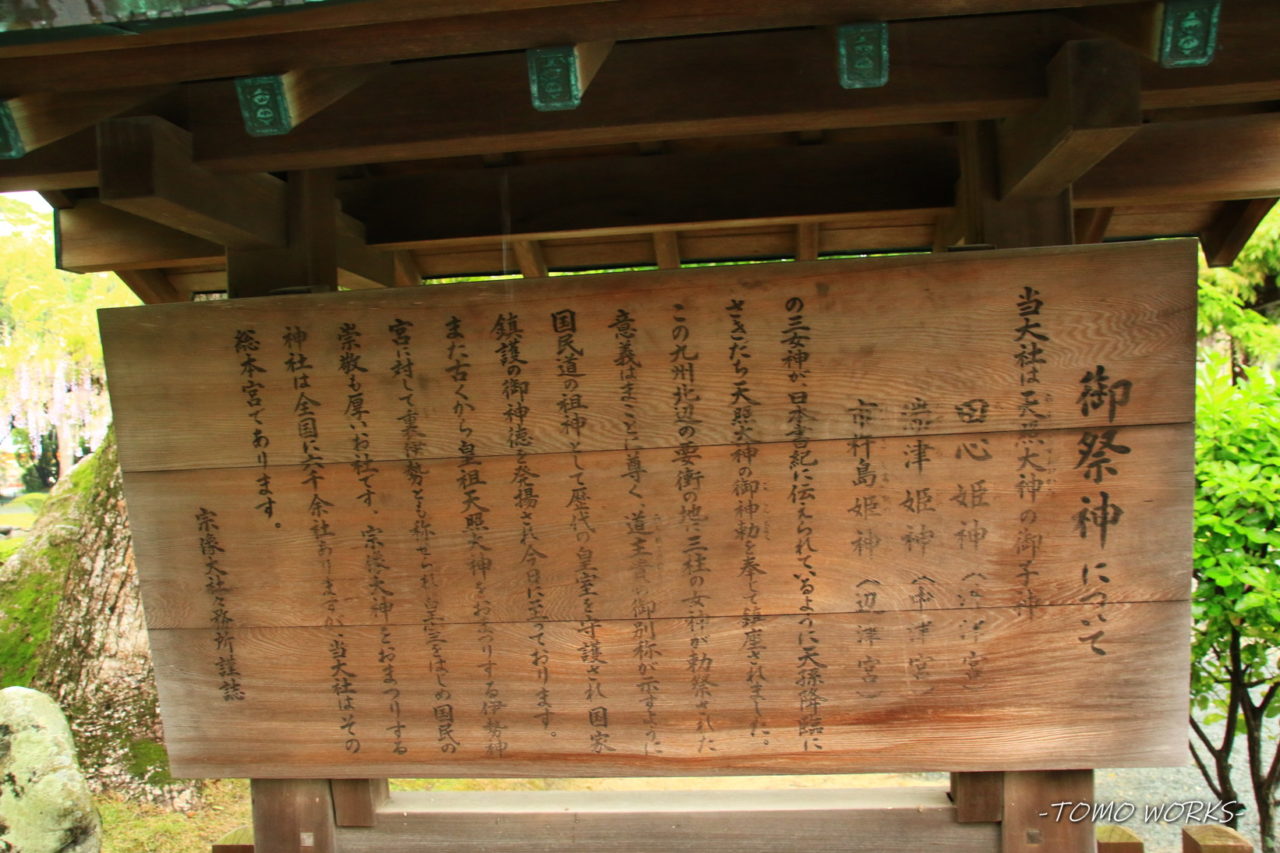 御祭神について
当大社は天照大神の御子神
田心姫神（沖津宮）
湍津姫神（中津宮）
市杵島姫神（辺津宮）
の三女神が、日本書紀に伝えられているように天孫降臨に
さきだち天照大神の御神勅を奉じて鎮座されました。
この九州北辺の要衝の地に三柱の女神が勅祭された
意義はまことに尊く、道主貴の御別称が示すように
国民道の祖神として歴代の皇室を守護され国家
鎮護の御神徳を発揚され今日に至っております。
また古くから皇祖天照大神をおまつりする伊勢神
宮に対して裏伊勢とも称せられ皇室をはじめ国民の
崇敬も厚いお社です。宗像大神をおまつりする
神社は全国に六千余社ありますが、当大社はその
総本宮であります。
宗像大社々務所謹誌
-TOMO WORKS-